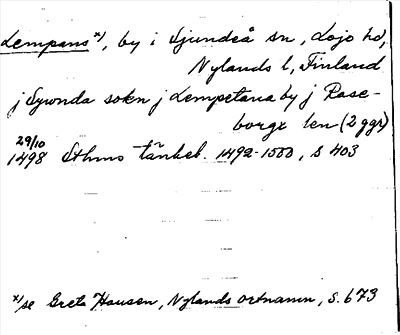 Lempans x), by i Sjundeå sn, Lojo hd,
Nylands l, Finland
j Sywnda sokn j Lempetana by j Rase-
borgx len (2 ggr)
29/10
1498 Sthms tänkeb. 1492-1500, s 403
x) se Greta Hausen, Nylands ortnamn, S. 673